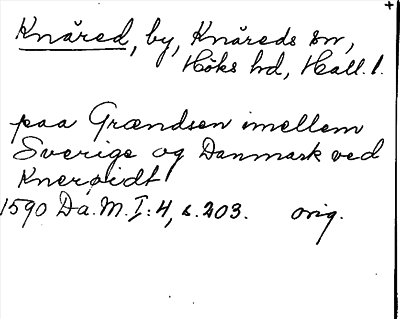 Knäred, by, Knäreds sn,
Höks hd, Hall. l.
paa Grændsen imellem
Sverige og Danmark ved
Knerøidt
1590 Da. M. I: 4, s. 203. orig.